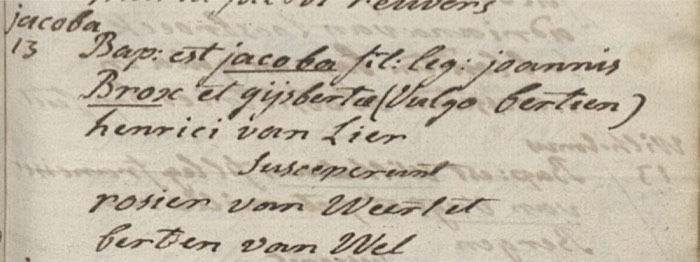 jacobi reuvers
jacoba
13 Bap: est jacoba fil: leg: joannis
Brox et gijsbertæ (Vulgo berteen)
henrici van Lier
Susceperunt
rosier van Weert et
berten van Wel